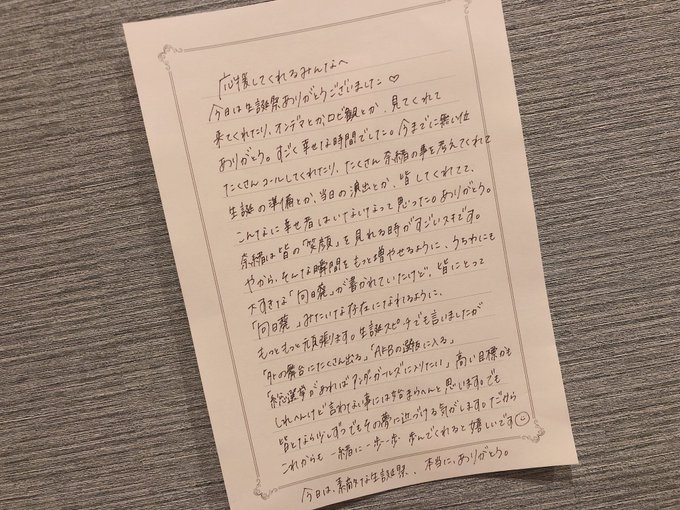 応援してくれるみんなへ
今日は生誕祭ありがとうございました♡
来てくれたり、オンデマとかロビ観とか、見てくれて
ありがとう。すごく幸せな時間でした。今までに無い位
たくさんコールしてくれたり、たくさん奈緒の事を考えてくれて
生誕の準備とか、当日の演出とか、皆してくれてて、
こんなに幸せ者はいないなって思った。ありがとう。
奈緒は皆の「笑顔」を見れる時がすごいスキです。
やから、そんな瞬間をもっと増やせるように、うちわにも
大すきな「向日葵」が書かれていたけど、皆にとって
「向日葵」みたいな存在になれるように、
もっともっと頑張ります。生誕スピーチでも言いましたが
「外の舞台にたくさん出る」「AKBの選抜に入る」
「総選挙があればアンダーガールズに入りたい」高い目標かも
しれへんけど言わない事には始まらへんと思います。でも
皆となら少しずつでもその夢に近づける気がします。だから
これからも一緒に一歩一歩歩んでくれると嬉しいです
今日は、素敵な生誕祭、本当に、ありがとう。